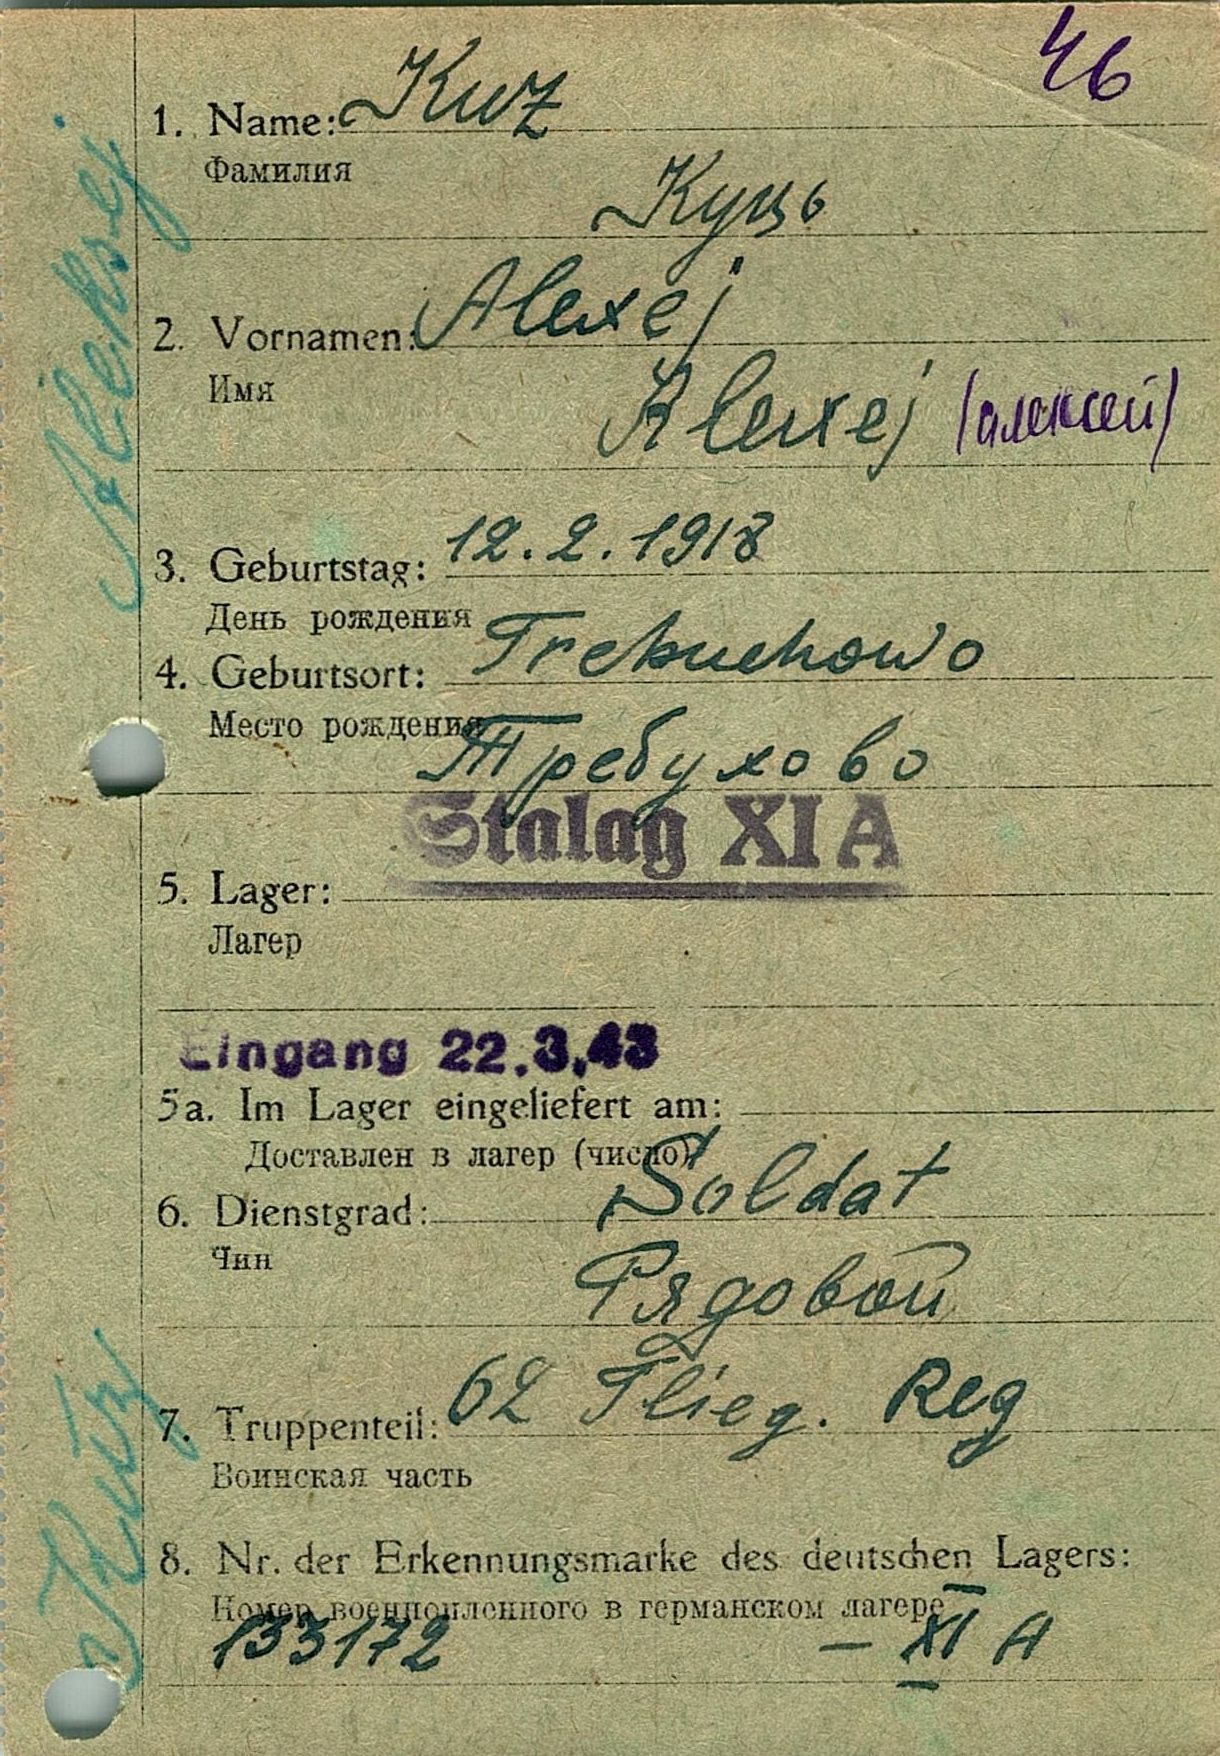 46
1. Name: Kuz
Фамилия
Куць
2. Vornamen: Alexej
Имя
Alexej (алексей)
3. Geburtstag: 12.2.1918
День рождения
4. Geburtsort: Trebuchowo
Место рождения
Требухово
Stalag XI A
5. Lager:
Лагер
Eingang 22.3.43
5a. Im Lager eingeliefert am:
Доставлен в лагер (число)
6. Dienstgrad: Soldat
Чин
Рядовой
7. Truppenteil: 62 Flieg. Reg
Воинская часть
8. Nr. der Erkennungsmarke des deutschen Lagers:
Номер военнопленного в германском лагере
133172 – XI A
Kuz
Aleksej